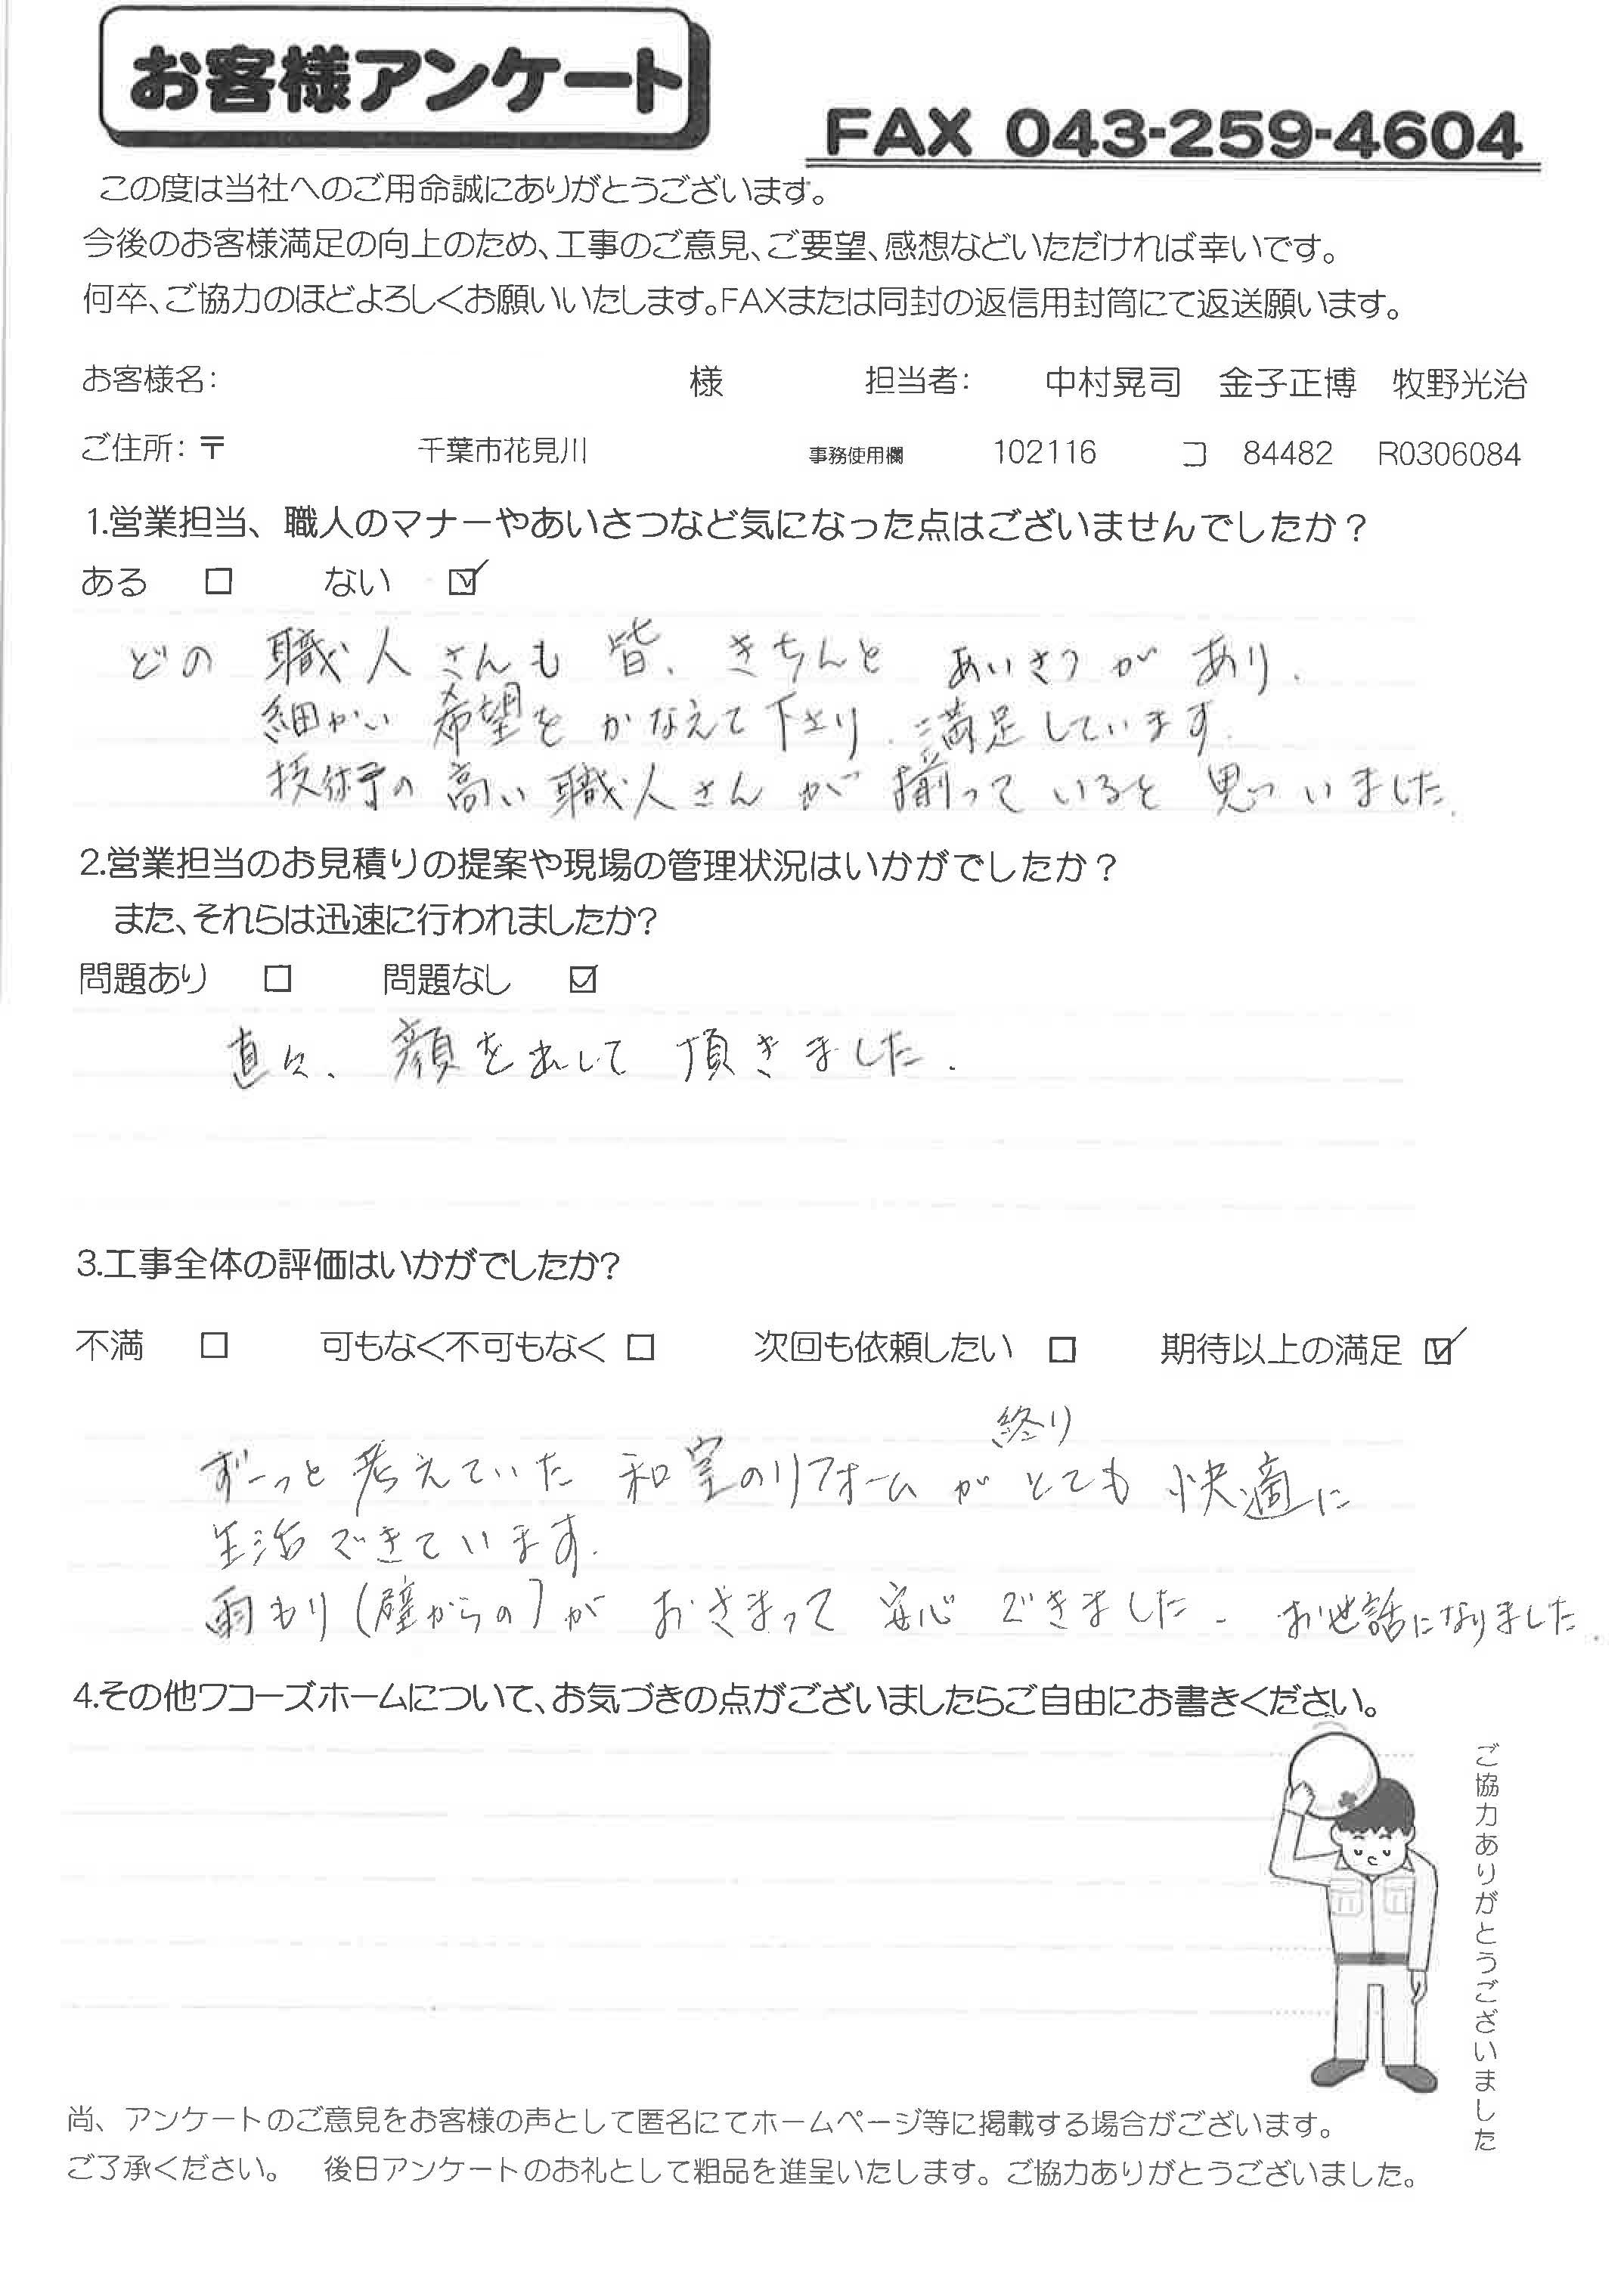 お客様アンケート
FAX 043-259-4604
この度は当社へのご用命誠にありがとうございます。
今後のお客様満足の向上のため、工事のご意見、ご要望、感想などいただければ幸いです。
何卒、ご協力のほどよろしくお願いいたします。FAXまたは同封の返信用封筒にて返送願います。
お客様名: 様 担当者: 中村晃司 金子正博 牧野光治
ご住所: 〒 千葉市花見川 事務使用欄 102116 コ 84482 R0306084
1.営業担当、職人のマナーやあいさつなど気になった点はございませんでしたか？
ある □ ない ☑
どの 職人さんも 皆、きちんと あいさつが あり、
細かい 希望を かなえて下さり、満足しています。
技術の 高い職人さんが 揃っていると 思いました。
2.営業担当のお見積りの提案や現場の管理状況はいかがでしたか？
また、それらは迅速に行われましたか?
問題あり □ 問題なし ☑
直々、顔を出して 頂きました。
3.工事全体の評価はいかがでしたか?
不満 □ 可もなく不可もなく □ 次回も依頼したい □ 期待以上の満足 ☑
終り
ずーっと 考えていた 和室のリフォームが とても 快適に
生活できています。
雨もり(壁からの)が おさまって 安心 できました。 お世話になりました。
4.その他ワコーズホームについて、お気づきの点がございましたらご自由にお書きください。
ご協力ありがとうございました
尚、アンケートのご意見をお客様の声として匿名にてホームページ等に掲載する場合がございます。
ご了承ください。 後日アンケートのお礼として粗品を進呈いたします。ご協力ありがとうございました。